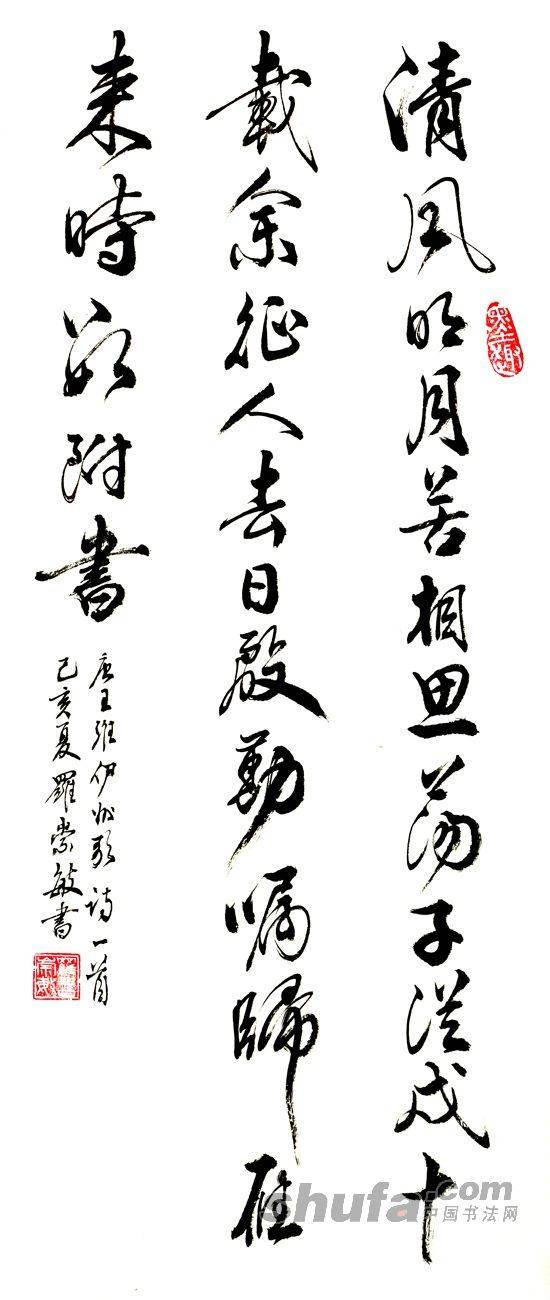 清風明月苦相思蕩子從戎十
載餘征人去日殷勤嘱歸雁
来時數附書
唐王維伊州歌詩一首
己亥夏羅崇敏書
shufa.com
中国书法网